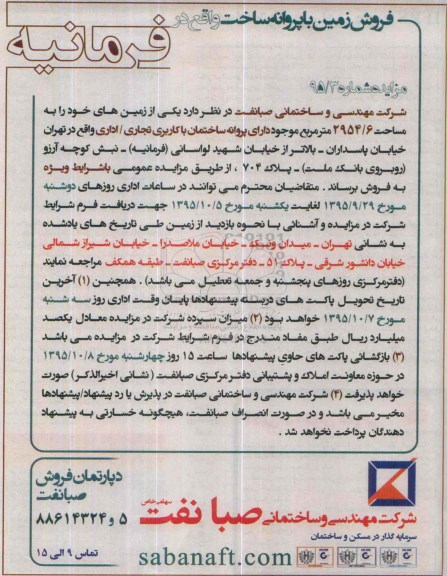 فروش زمین با پروانه ساخت واقع در
فرمانیه
مزایده شماره ۹۵/۳
شرکت مهندسی و ساختمانی صبانفت در نظر دارد یکی از زمین های خود را به
مساحت ۲۹۵۴/۶ مترمربع موجود دارای پروانه ساختمان با کاربری تجاری / اداری واقع در تهران
خیابان پاسداران - بالاتر از خیابان شهید لواسانی (فرمانیه) - نبش کوچه آرزو
(روبروی بانک ملت) - پلاک ۷۰۴ ، از طریق مزایده عمومی باشرایط ویژه
به فروش برساند . متقاضیان محترم می توانند در ساعات اداری روزهای دوشنبه
مورخ ۱۳۹۵/۹/۲۹ لغایت یکشنبه مورخ ۱۳۹۵/۱۰/۵ جهت دریافت فرم شرایط
شرکت در مزایده و آشنائی با نحوه بازدید از زمین طی تاریخ های یادشده
به نشانی تهران - میدان ونک - خیابان ملاصدرا - خیابان شیراز شمالی
خیابان دانشور شرقی - پلاک ۵۱ - دفتر مرکزی صبانفت - طبقه همکف مراجعه نمایند
(دفترمرکزی روزهای پنجشنبه و جمعه تعطیل می باشد) . همچنین (۱) آخرین
تاریخ تحویل پاکت های دربسته پیشنهادها پایان وقت اداری روز سه شنبه
مورخ ۱۳۹۵/۱۰/۷ خواهد بود (۲) میزان سپرده شرکت در مزایده معادل یکصد
میلیارد ریال طبق مفاد مندرج در فرم شرایط شرکت در مزایده می باشد
(۳) بازگشائی پاکت های حاوی پیشنهادها ساعت ۱۵ روز چهارشنبه مورخ ۱۳۹۵/۱۰/۸
در حوزه معاونت املاک و پشتیبانی دفتر مرکزی صبانفت ( نشانی اخیرالذکر) صورت
خواهد پذیرفت (۴) شرکت مهندسی و ساختمانی صبانفت در پذیرش یا رد پیشنهاد/پیشنهادها
مخیر می باشد و در صورت انصراف صبانفت، هیچگونه خسارتی به پیشنهاد
دهندگان پرداخت نخواهد شد .
دپارتمان فروش
صبانفت
۸۸۶۱۴۳۲۴ و ۵
تماس ۹ الی ۱۵
سهامی خاص
شرکت مهندسی و ساختمانی صبا نفت
سرمایه گذار در مسکن و ساختمان
sabanaft.com